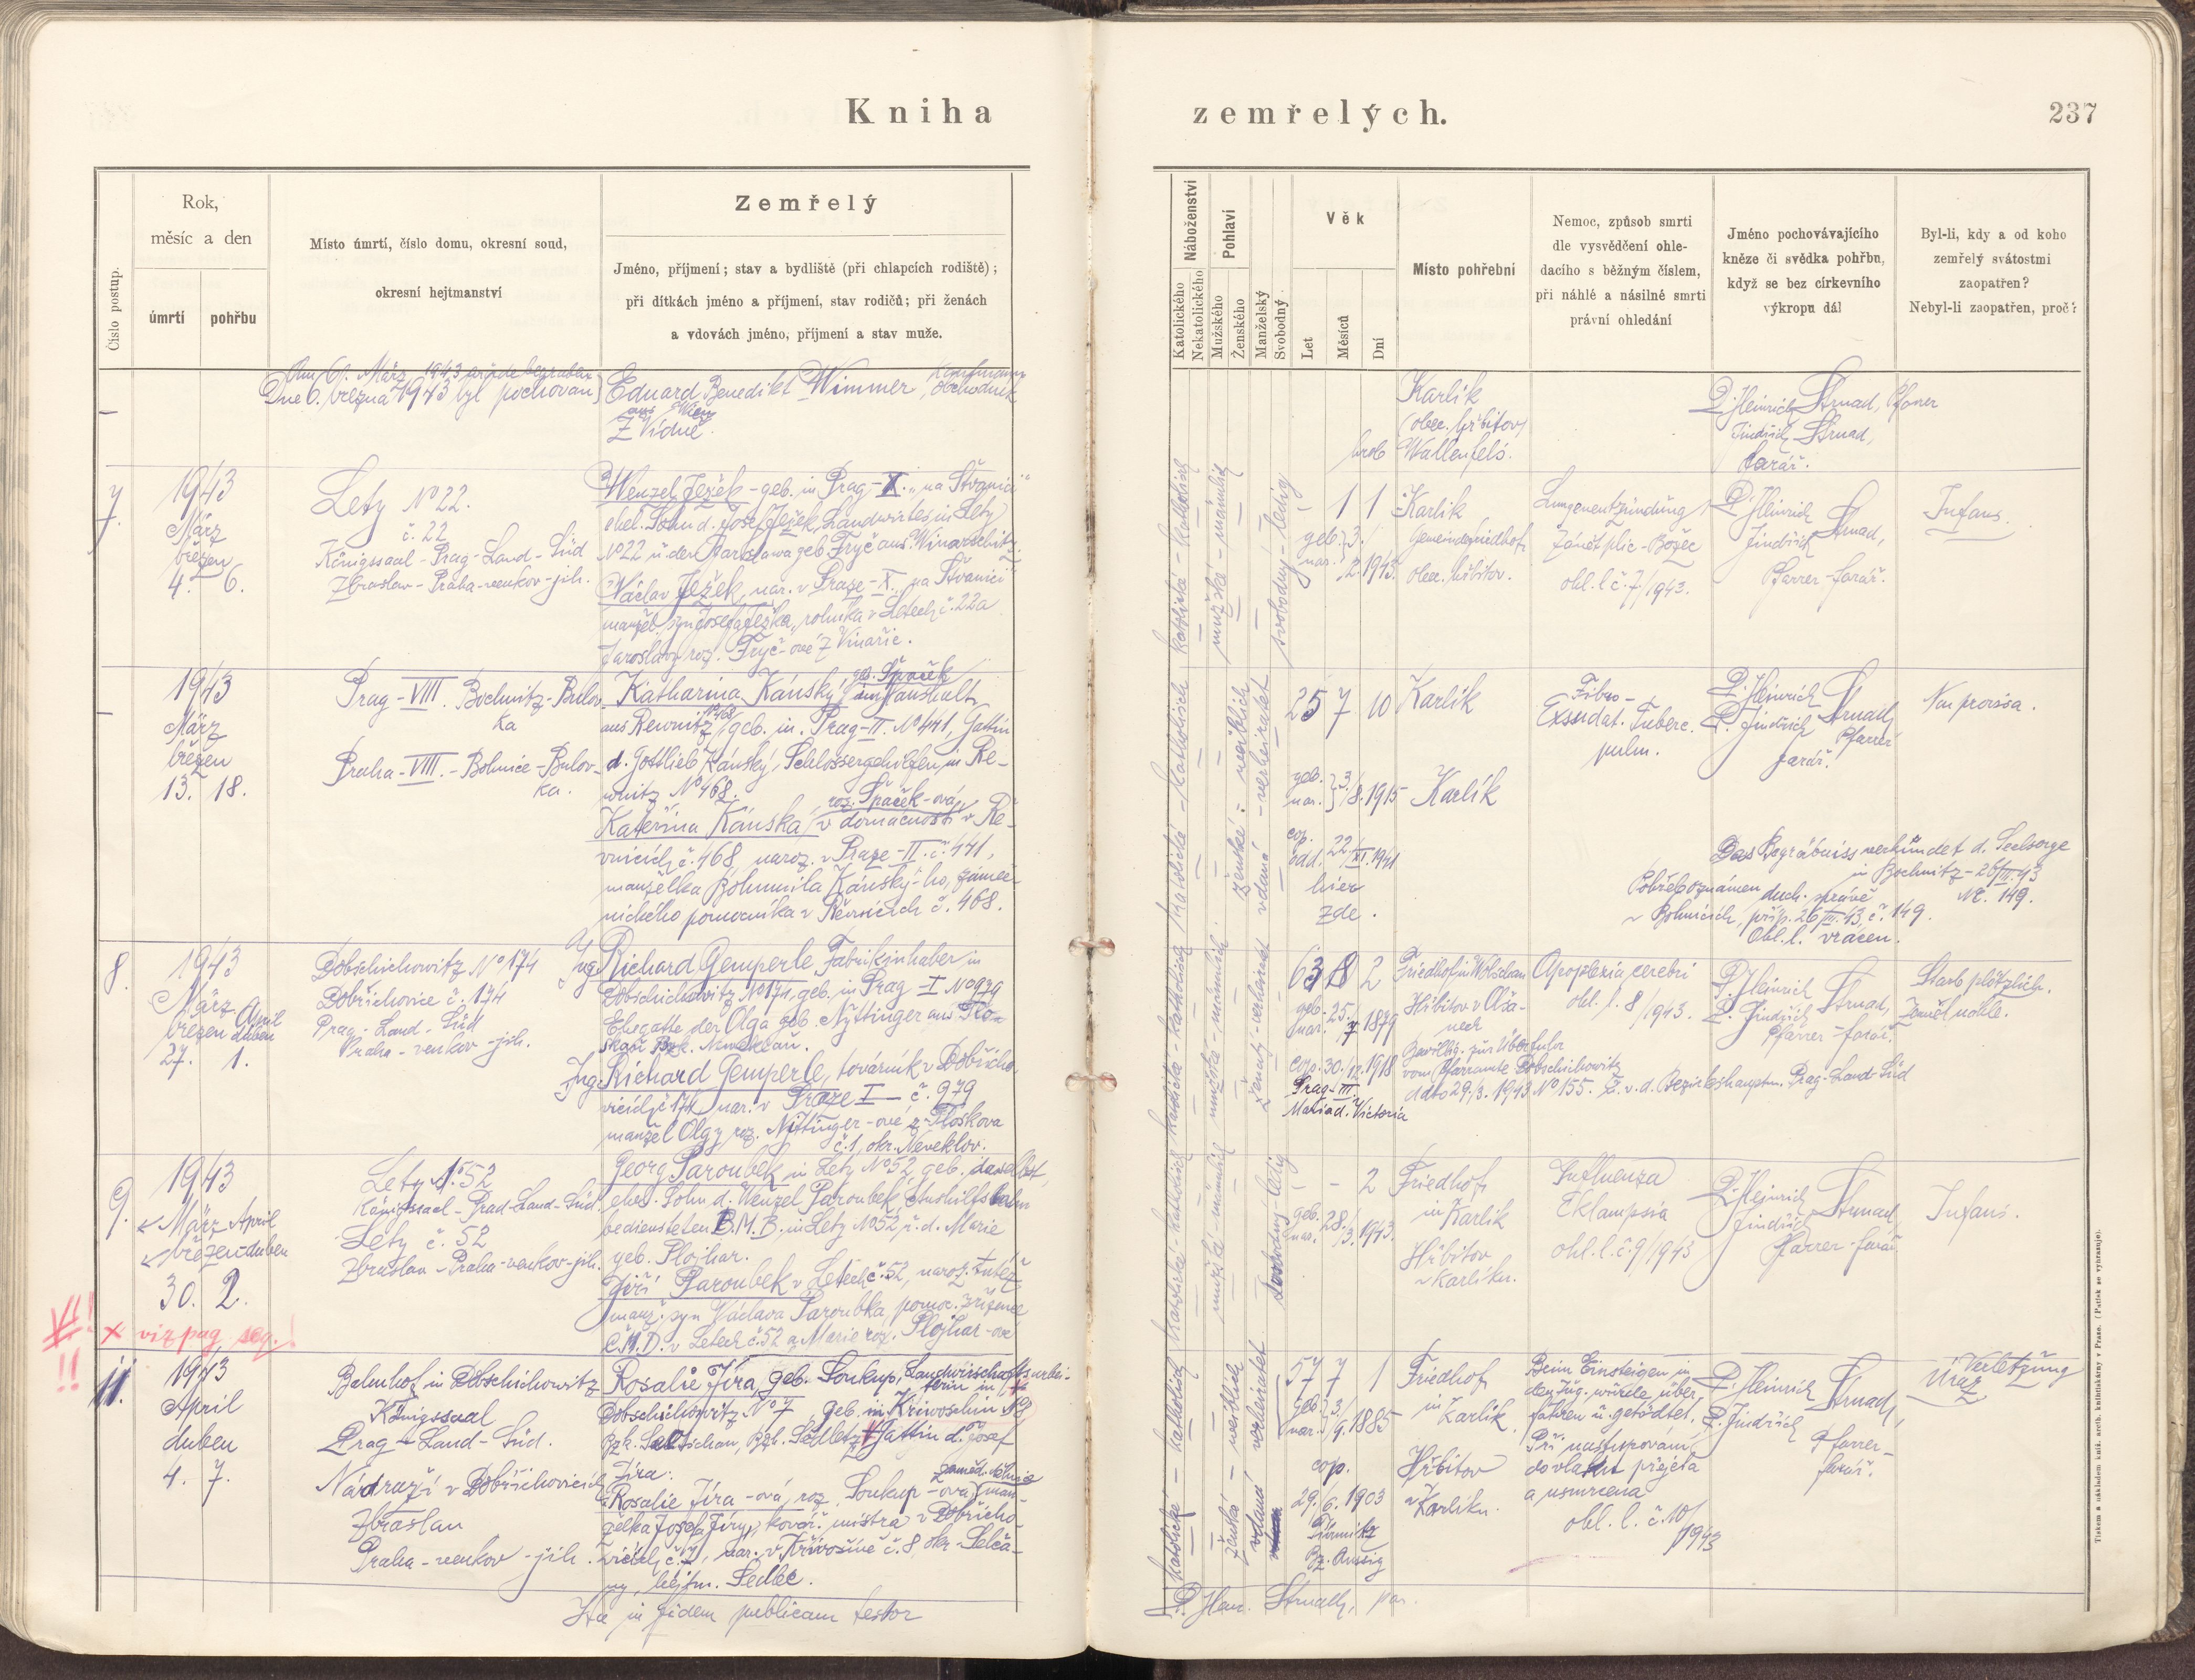 Kniha zemřelých. 237
Číslo postup.
Rok,
měsíc a den
úmrtí pohřbu
Místo úmrtí, číslo domu, okresní soud,
okresní hejtmanství
Zemřelý
Jméno, příjmení; stav a bydliště (při chlapcích rodiště);
při dítkách jméno a příjmení, stav rodičů; při ženách
a vdovách jméno, příjmení a stav muže.
Náboženství
Katolického
Nekatolického
Pohlaví
Mužského
Ženského
Manželský
Svobodný
Věk
Let
Měsíců
Dní
Místo pohřební
Nemoc, způsob smrti
dle vysvědčení ohle-
dacího s běžným číslem,
při náhlé a násilné smrti
právní ohledání
Jméno pochovávajícího
kněze či svědka pohřbu,
když se bez církevního
výkropu dál
Byl-li, kdy a od koho
zemřelý svátostmi
zaopatřen?
Nebyl-li zaopatřen, proč?
–
Am 6. März 1943 wurde begraben
Dne 6. března 1943 byl pochován
Eduard Benedikt Wimmer, Kaufmann
obchodník
aus Wien
Z Vídně.
Karlík
(obec. hřbitov)
hrob Wallenfels.
P. Heinrich Strnad, Pfarrer
Jindřich Strnad,
farář.
7.
1943
März
březen
4. 6.
Lety No 22.
č. 22
Königssaal - Prag - Land - Süd
Zbraslav - Praha - venkov - jih.
Wenzel Ježek - geb. in Prag - X. "na Štvanici"
ehel. Sohn d. Josef Ježek, Landwirtes in Lety
No 22 u. der Jaroslawa geb. Fryč aus Winarschitz.
Václav Ježek, nar. v Praze - X. "na Štvanici"
manžel. syn Josefa Ježka, rolníka v Letech č. 22 a
Jaroslavy roz. Fryč-ové z Vinařic.
– 1 1
geb. nar. 3./2. 1943.
Karlík
Gemeindefriedhof
obec. hřbitov.
Lungenentzündung
Zánět plic - Božec
ohl. l. č. 7/1943.
P. Heinrich
Jindřich Strnad,
Pfarrer - farář.
Infans.
–
1943
März
březen
13. 18.
Prag - VIII. Bochnitz - Bulov-
ka
Praha - VIII. - Bohnice - Bulov-
ka.
Katharina Kánský, geb. Špaček im Haushalt,
aus Rewnitz No 468, geb. in Prag - II. No 441, Gattin
d. Gottlieb Kánský, Schlossergehilfen in Re-
wnitz No 468.
Kateřina Kánská, roz. Špaček-ová, v domácnosti v Ře-
vnicích č. 468, naroz. v Praze - II. č. 441,
manželka Bohumila Kánský-ho, zámeč-
nického pomocníka v Řevnicích č. 468.
25 7 10
geb. nar. 3./8. 1915
cop. odd. 22./XI. 1941
hier
zde.
Karlík
Karlík
Fibro -
Exsudat. Tuberc.
pulm.
P. Heinrich
P. Jindřich Strnad
Pfarrer
farář.
Non provisa.
Das Begräbniss verkündet d. Seelsorge
in Bochnitz - 26/III. 43
No. 149.
Pohřeb oznámen duch. správě
v Bohnicích, příp. 26/III. 43, č. 149.
Ohl. l. vrácen.
8.
1943
März April
březen duben
27. 1.
Dobschichowitz No 174
Dobřichovice č. 174
Prag - Land - Süd
Praha - venkov - jih.
Ing. Richard Gemperle Fabrikinhaber in
Dobschichowitz No 174, geb. in Prag - I No 979
Ehegatte der Olga geb. Nyttinger aus
Ing. Richard Gemperle, továrník v Dobřicho-
vicích č. 174 nar. v Praze I - č. 979
manžel Olgy roz. Nyttinger-ové z Ploskova
č. 1, okr. Neveklov.
63 8 2
geb. nar. 25./7 1879
cop. 30./ 1918
Prag - III.
Maria d. Victoria
Friedhof in Wolschan
Hřbitov v Olša-
nech
Apoplexia cerebri
ohl. l. 8/1943.
P. Heinrich
P. Jindřich Strnad,
Pfarrer - farář.
Starb plötzlich.
Zemřel náhle.
Bewillig. zur Überfuhr
vom Pfarramte Dobschichowitz
ddto 29./3. 1943 No 155. Z. v. d. Bezirkshauptm. Prag - Land - Süd
9.
1943
März April
březen duben
30. 2.
x viz pag. seq.!
VI!!
!!
Lety No 52
Königssaal - Prag - Land - Süd.
Lety č. 52
Zbraslav - Praha - venkov - jih.
Georg Paroubek in Lety No 52, geb. daselbst,
ehel. Sohn d. Wenzel Paroubek, Aushilfsbahn
bediensteten B. M. B. in Lety No 52, u. d. Marie
geb. Plojhar.
Jiří Paroubek v Letech č. 52, naroz. tutéž
manž. syn Václava Paroubka, pomoc. zřízence
Č.M.D. v Letech č. 52 a Marie roz. Plojhar-ové
– – 2
geb. nar. 28./3. 1943.
Friedhof
in Karlík
Hřbitov
v Karlíku.
Influenza
Eklampsia
ohl. l. č. 9/1943
P. Heinrich
Jindřich Strnad,
Pfarrer - farář.
Infans.
11.
1943
April
duben
4. 7.
Bahnhof in Dobschichowitz
Königssaal
Prag - Land - Süd.
Nádraží v Dobřichovicích
Zbraslav
Praha - venkov - jih.
Rosalie Jíra, geb. Soukup, Landwirschaftsarbei-
terin in
Dobschichowitz No 7 geb. in Kriwoschin No 8
Bzk. Seltschan, Bzh. Sedletz, Gattin d. Josef
Jíra.
Rosalie Jíra-ová, roz. Soukup-ová, zeměd. dělnice man-
želka Josefa Jíry, kovář. mistra v Dobřicho-
vicích č. 7, nar. v Křivošíně č. 8, okr. Selča-
ny, hejtm. Sedlec.
57 7 1
geb. nar. 3./9. 1885
cop.
29./6. 1903
Bz. Aussig
Friedhof
in Karlík
Hřbitov
v Karlíku.
Beim Einsteigen in
den Zug, wurde über-
fahren u. getödtet.
Při nastupování
do vlaku přejeta
a usmrcena
ohl. l. č. 10/1943
P. Heinrich
P. Jindřich Strnad,
Pfarrer -
farář.
Verletzung
Úraz
Ita in fidem publicam testor
P. Hein. Strnad, par.
Tiskem a nákladem kníž. arcib. knihtiskárny v Praze. (Patisk se vyhrazuje).